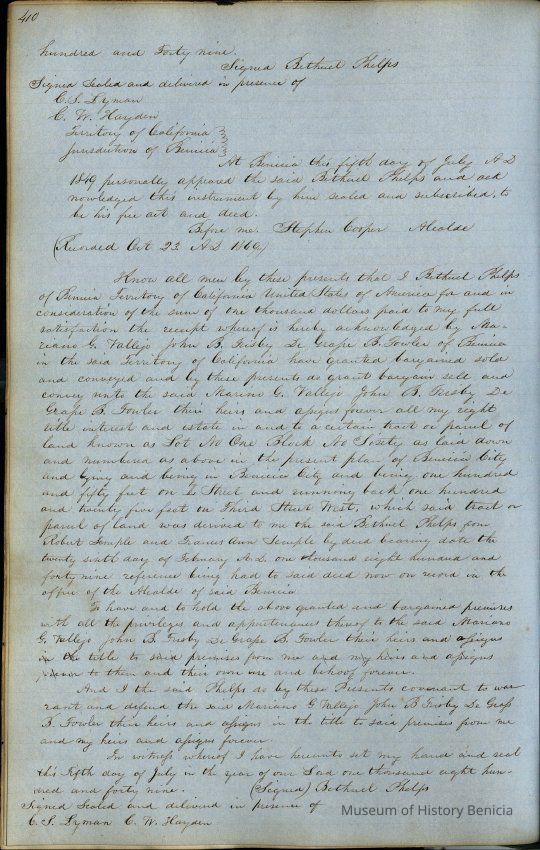 410
hundred and Forty nine.
Signed Bethuel Phelps
Signed Sealed and delivered in presence of
C. S. Lyman
C. W. Hayden
Territory of California
Jurisdiction of Benicia
At Benicia this fifth day of July A D
1849 personally appeared the said Bethuel Phelps and ack
nowledged this instrument by him sealed and subscribed, to
be his free act and deed.
Before me. Stephen Cooper Alcalde
(Recorded Oct 23 A D 1860,)
Know all men by these presents that I Bethuel Phelps
of Benicia Territory of California United States of America for and in
consideration of the sum of one thousand dollars paid to my full
satisfaction the receipt whereof is hereby acknowledged by Ma-
riano G. Vallejo John B. Frisby De Grape B. Fowler of Benicia
in the said Territory of California have granted bargained sold
and conveyed and by these presents do grant bargain sell and
convey unto the said Mariano G. Vallejo John B. Frisby De
Grape B. Fowler their heirs and assigns forever all my right
title interest and estate in and to a certain tract or parcel of
land known as Lot No One Block No Sixty as laid down
and numbered as above in the present plan of Benicia City
and lying and being in Benicia City and being one hundred
and fifty feet on L Street and running back one hundred
and twenty five feet on Third Street West, which said tract or
parcel of land was derived to me the said Bethuel Phelps from
Robert Semple and Frances Ann Semple by deed bearing date the
twenty sixth day of February A.D. one thousand eight hundred and
forty nine reference being had to said deed now on record in the
office of the Alcalde of said Benicia
To have and to hold the above granted and bargained premises
with all the privileges and appurtenances thereof to the said Mariano
G. Vallejo John B. Frisby De Grape B. Fowler their heirs and assigns
in the title to said premises from me and my heirs and assigns
forever to them and their own use and behoof forever.
And I the said Phelps do by these Presents covenant to war
rant and defend the said Mariano G Vallejo John B Frisby De Grass
B. Fowler their heirs and assigns in the title to said premises from me
and my heirs and assigns forever.
In witness whereof I have hereunto set my hand and seal
this Fifth day of July in the year of our Lord one thousand eight hun-
dred and forty nine. (Signed) Bethuel Phelps
Signed Sealed and delivered in presence of
C. S. Lyman C. W. Hayden
Museum of History Benicia